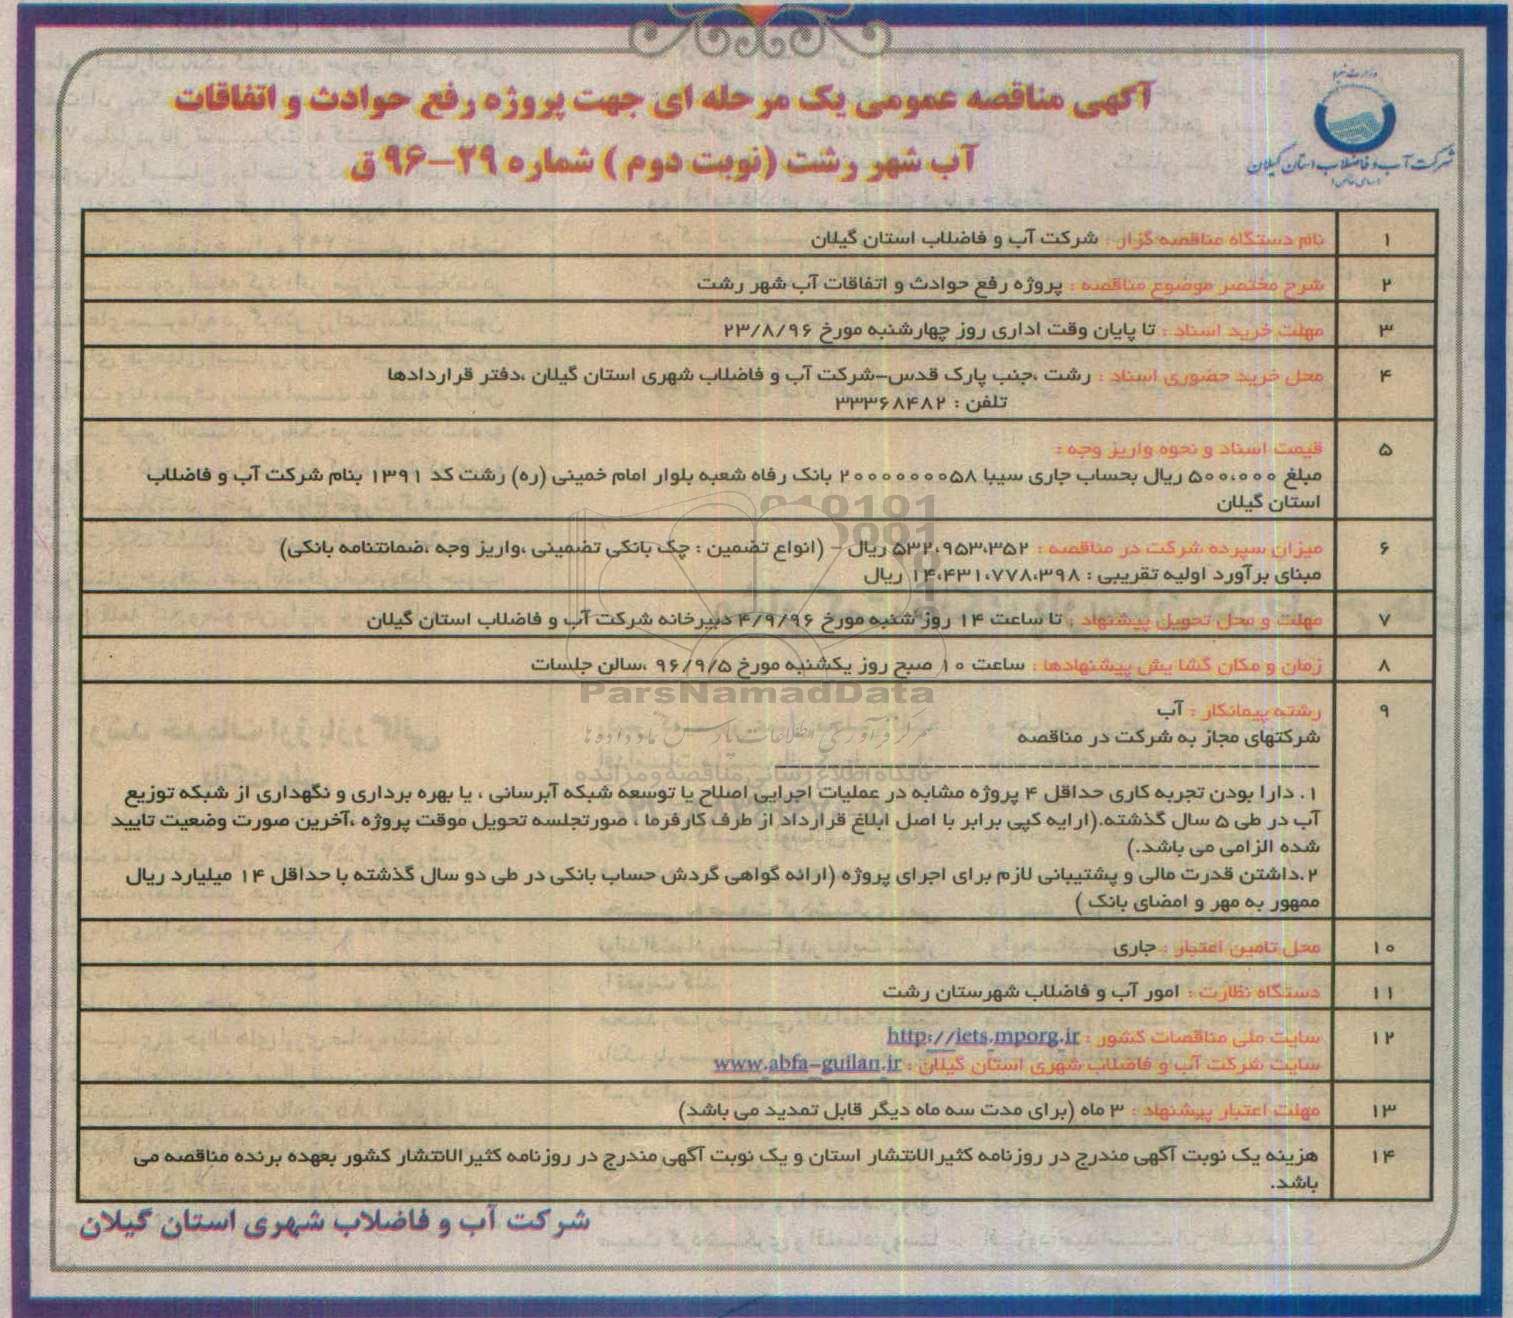 وزارت نیرو
شرکت آب و فاضلاب استان گیلان
(سهامی خاص)
آگهی مناقصه عمومی یک مرحله ای جهت پروژه رفع حوادث و اتفاقات
آب شهر رشت (نوبت دوم ) شماره ۲۹-۹۶ ق
۱ نام دستگاه مناقصه گزار : شرکت آب و فاضلاب استان گیلان
۲ شرح مختصر موضوع مناقصه : پروژه رفع حوادث و اتفاقات آب شهر رشت
۳ مهلت خرید اسناد : تا پایان وقت اداری روز چهارشنبه مورخ ۲۳/۸/۹۶
۴ محل خرید حضوری اسناد : رشت ،جنب پارک قدس-شرکت آب و فاضلاب شهری استان گیلان ،دفتر قراردادها
تلفن : ۳۳۳۶۸۴۸۲
۵ قیمت اسناد و نحوه واریز وجه :
مبلغ ۵۰۰،۰۰۰ ریال بحساب جاری سیبا ۲۰۰۰۰۰۰۰۵۸ بانک رفاه شعبه بلوار امام خمینی (ره) رشت کد ۱۳۹۱ بنام شرکت آب و فاضلاب
استان گیلان
۶ میزان سپرده شرکت در مناقصه : ۵۳۲،۹۵۳،۳۵۲ ریال - (انواع تضمین : چک بانکی تضمینی ،واریز وجه ،ضمانتنامه بانکی)
مبنای برآورد اولیه تقریبی : ۱۴،۴۳۱،۷۷۸،۳۹۸ ریال
۷ مهلت و محل تحویل پیشنهاد : تا ساعت ۱۴ روز شنبه مورخ ۴/۹/۹۶ دبیرخانه شرکت آب و فاضلاب استان گیلان
۸ زمان و مکان گشایش پیشنهادها : ساعت ۱۰ صبح روز یکشنبه مورخ ۹۶/۹/۵ ،سالن جلسات
ParsNamadData
۹ رشته پیمانکار : آب
شرکتهای مجاز به شرکت در مناقصه
پایگاه اطلاع رسانی مناقصه و مزایده
۱. دارا بودن تجربه کاری حداقل ۴ پروژه مشابه در عملیات اجرایی اصلاح یا توسعه شبکه آبرسانی ، یا بهره برداری و نگهداری از شبکه توزیع
آب در طی ۵ سال گذشته.(ارایه کپی برابر با اصل ابلاغ قرارداد از طرف کارفرما ، صورتجلسه تحویل موقت پروژه ،آخرین صورت وضعیت تایید
شده الزامی می باشد.)
۲.داشتن قدرت مالی و پشتیبانی لازم برای اجرای پروژه (ارائه گواهی گردش حساب بانکی در طی دو سال گذشته با حداقل ۱۴ میلیارد ریال
ممهور به مهر و امضای بانک )
۱۰ محل تامین اعتبار : جاری
۱۱ دستگاه نظارت : امور آب و فاضلاب شهرستان رشت
۱۲ سایت ملی مناقصات کشور : http://iets.mporg.ir
سایت شرکت آب و فاضلاب شهری استان گیلان : www.abfa-guilan.ir
۱۳ مهلت اعتبار پیشنهاد : ۳ ماه (برای مدت سه ماه دیگر قابل تمدید می باشد)
۱۴ هزینه یک نوبت آگهی مندرج در روزنامه کثیرالانتشار استان و یک نوبت آگهی مندرج در روزنامه کثیرالانتشار کشور بعهده برنده مناقصه می
باشد.
شرکت آب و فاضلاب شهری استان گیلان